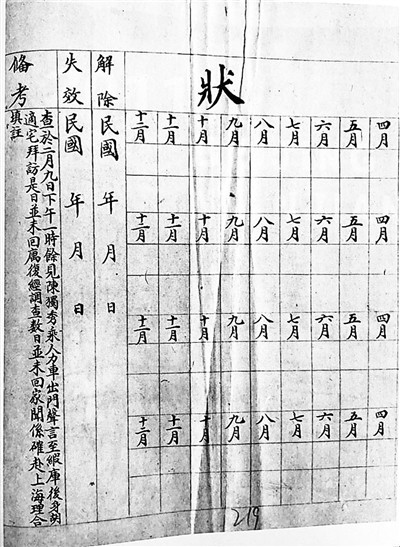 狀
四月 五月 六月 七月 八月 九月 十月 十一月 十二月
四月 五月 六月 七月 八月 九月 十月 十一月 十二月
四月 五月 六月 七月 八月 九月 十月 十一月 十二月
四月 五月 六月 七月 八月 九月 十月 十一月 十二月
解除民國 年 月 日
失效民國 年 月 日
俻考
查於二月九日下午一時餘見陳獨秀乘人力車出門聲言至緞庫後身胡
適宅拜訪是日並未回寓復經調查數日並未回家聞係確赴上海理合
填註
219